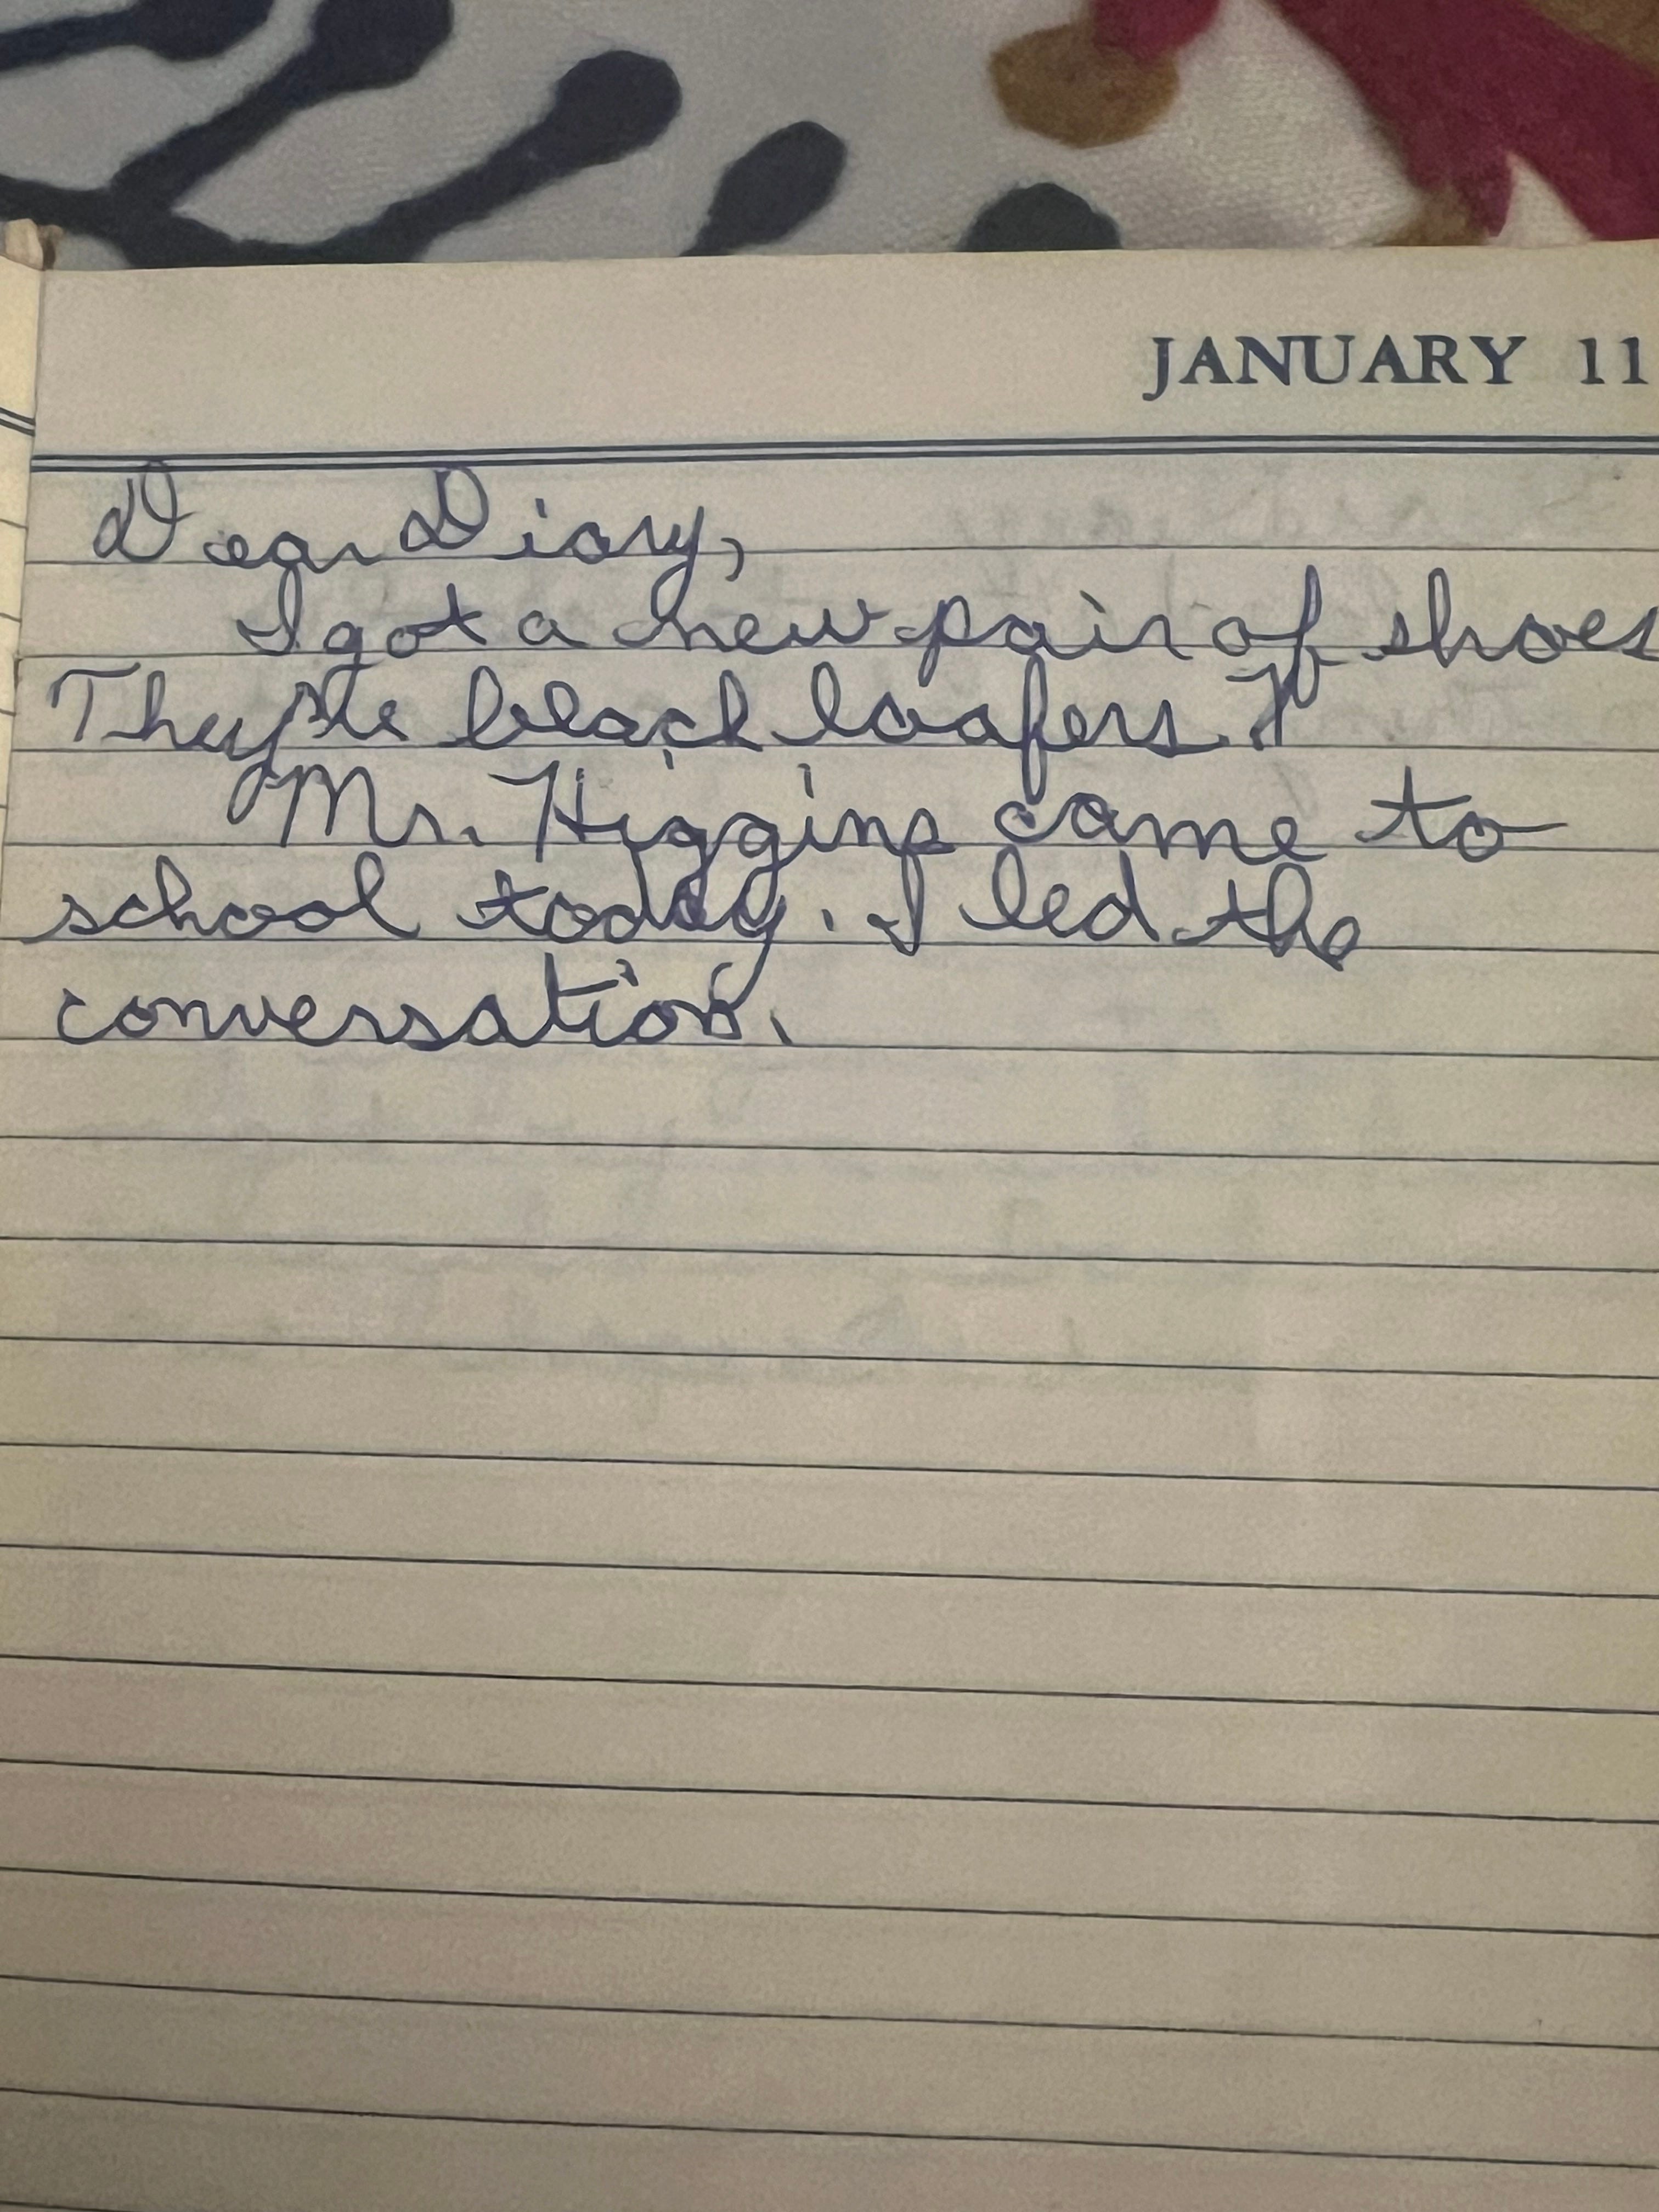 JANUARY 11
Dear Diary,
I got a new pair of shoes
They're black loafers.
Mr. Higgins came to
school today. I led the
conversation.